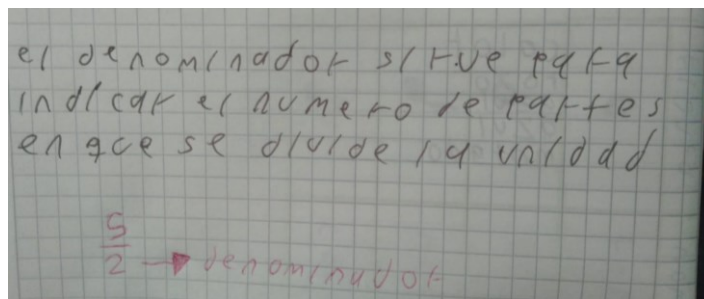 el denominador sirve para
indicar el numero de partes
en que se divide la unidad
5
2 → denominador